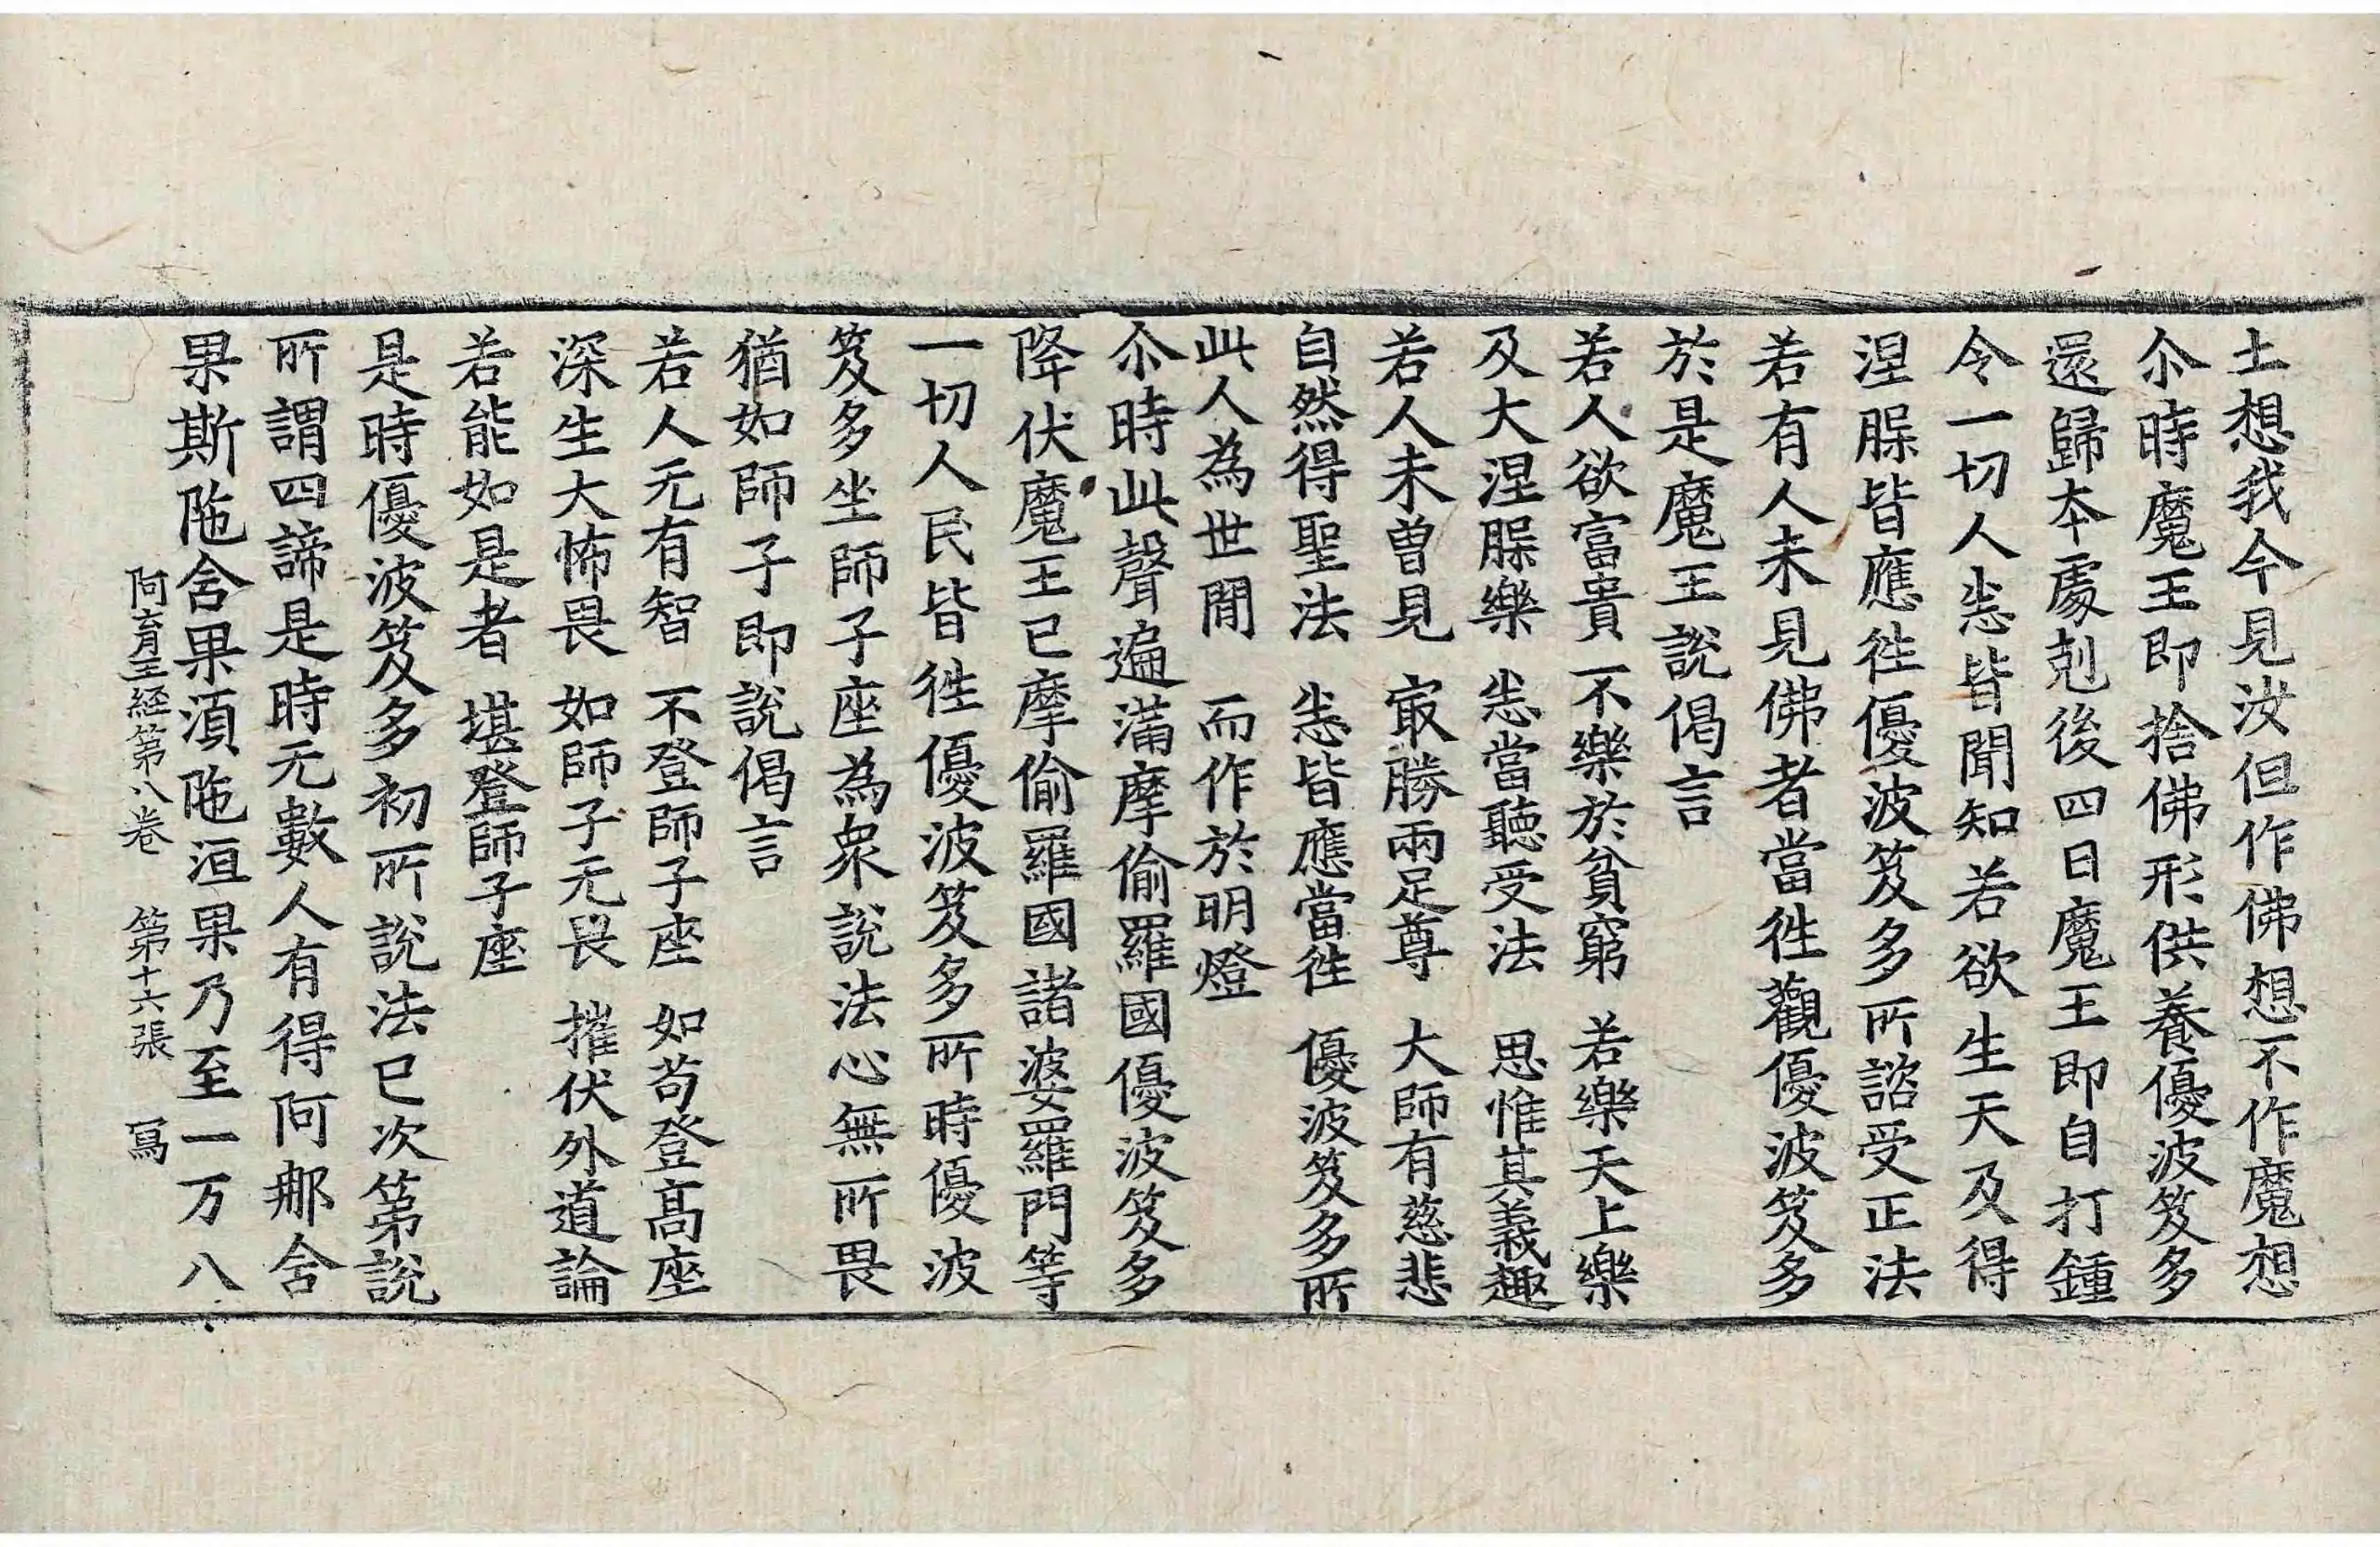 土想我今見汝但作佛想不作魔想
尒時魔王即捨佛形供養優波笈多
還歸本處剋後四日魔王即自打鍾
令一切人悉皆聞知若欲生天及得
涅脲皆應徃優波笈多所諮受正法
若有人未見佛者當徃觀優波笈多
於是魔王說偈言
若人欲富貴 不樂於貧窮 若樂天上樂
及大涅脲樂 悉當聽受法 思惟其義趣
若人未曽見 㝡勝兩足尊 大師有慈悲
自然得聖法 悉皆應當徃 優波笈多所
此人為世閒 而作於明燈
尒時此聲遍滿摩偷羅國優波笈多
降伏魔王已摩偷羅國諸婆羅門等
一切人民皆徃優波笈多所時優波
笈多坐師子座為衆說法心無所畏
猶如師子即說偈言
若人无有智 不登師子座 如苟登髙座
深生大怖畏 如師子无畏 摧伏外道論
若能如是者 堪登師子座
是時優波笈多初所說法已次第說
所謂四諦是時无數人有得阿那舍
果斯陁舍果湏陁洹果乃至一万八
阿育王経第八卷 第十六張 冩